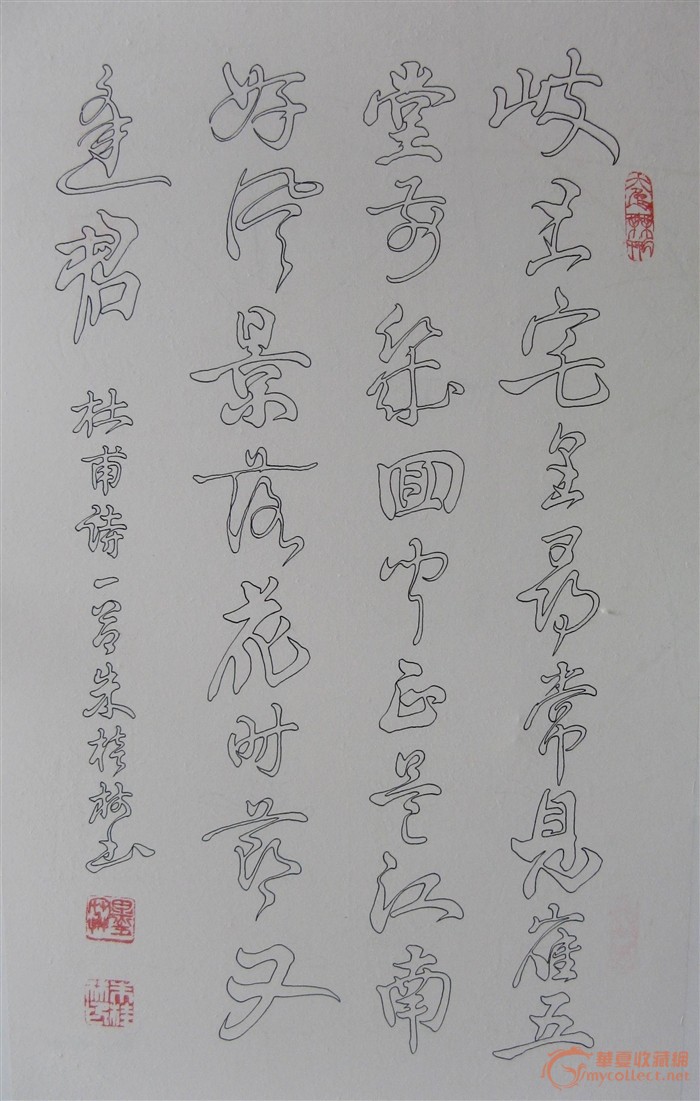 岐王宅里尋常見崔五
堂前幾回闻正是江南
好风景落花时節又
逢君
杜甫詩一首朱桂树书
華夏收藏網
mycollect.net